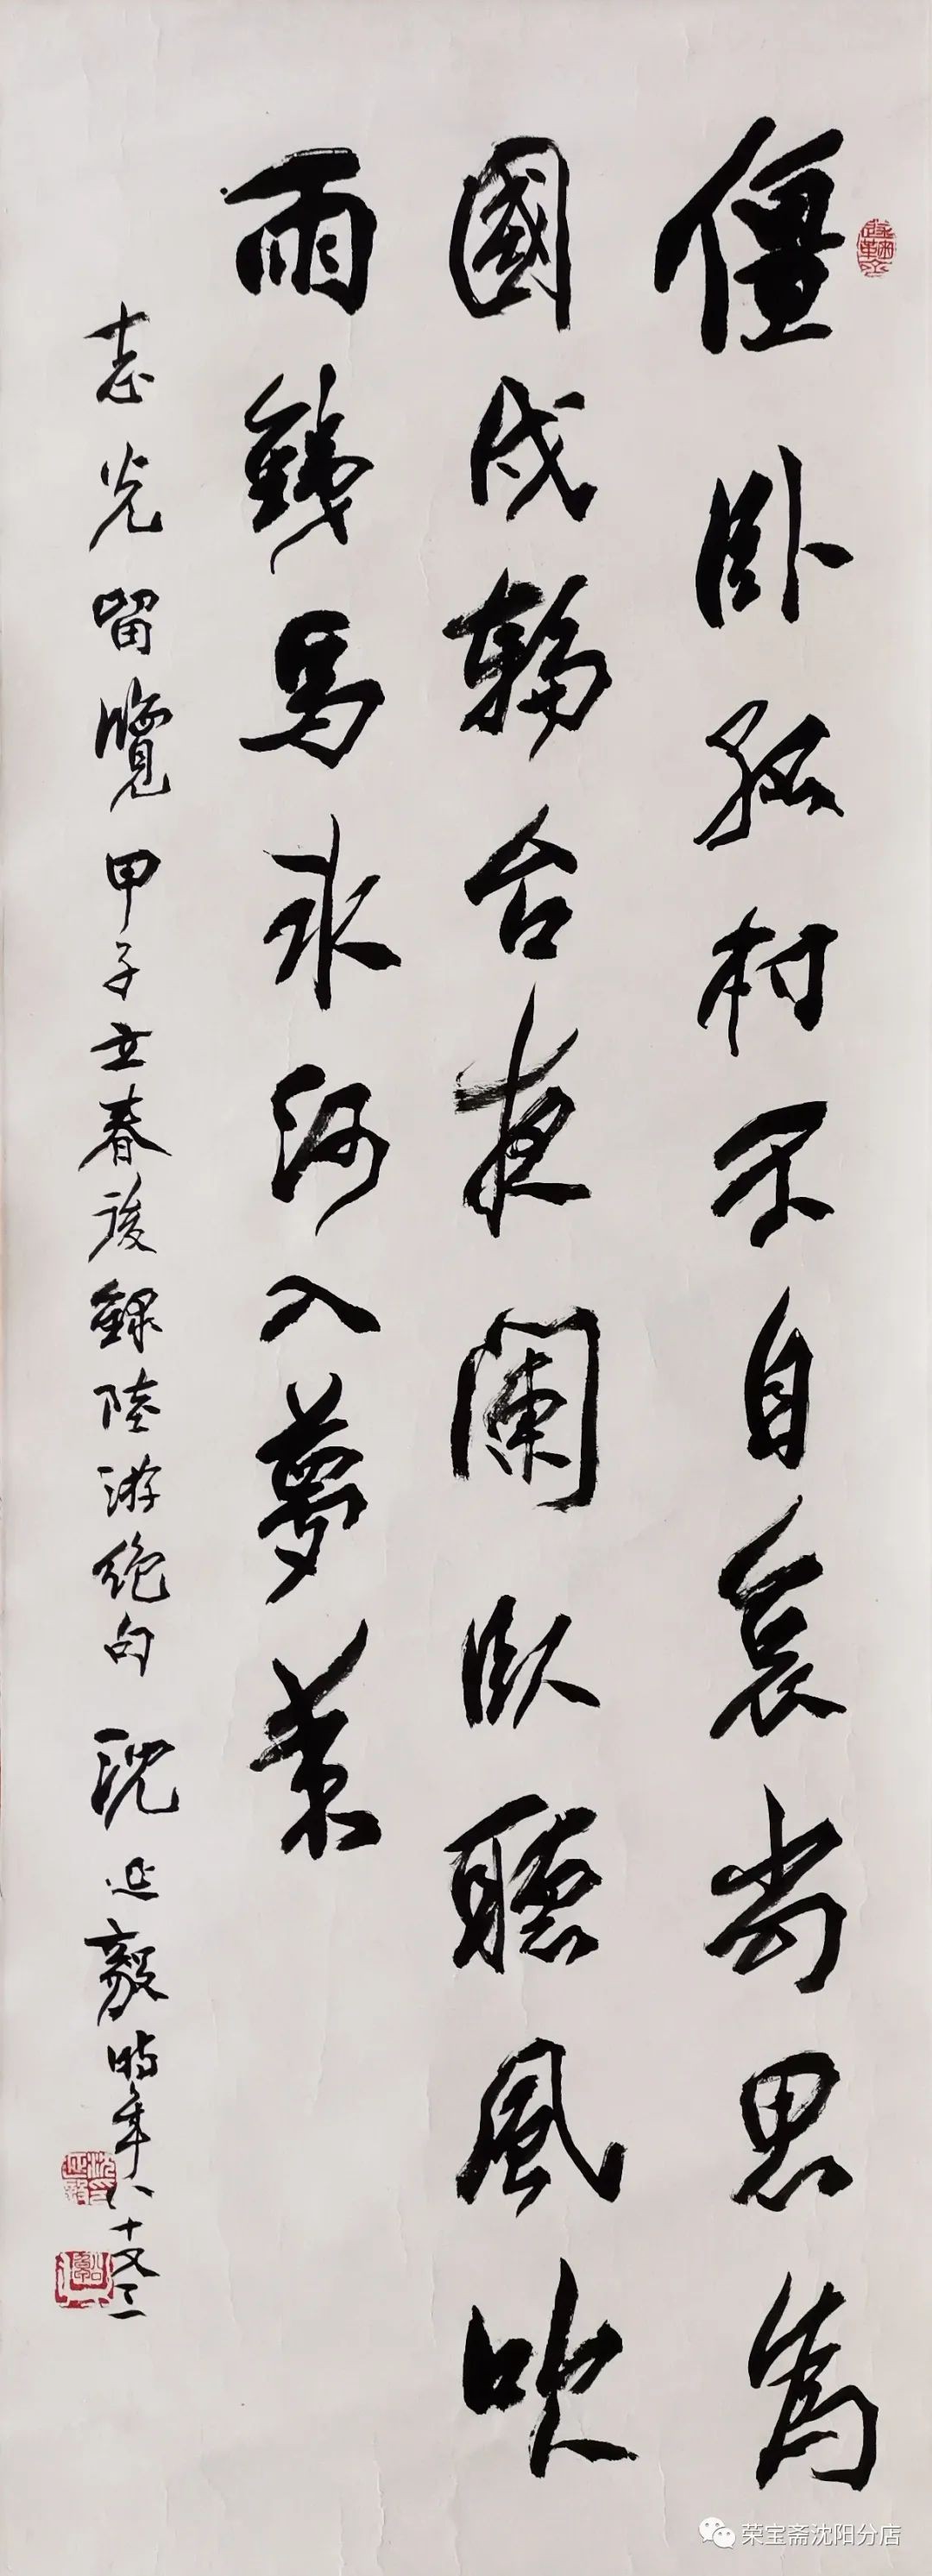 僵卧孤村不自哀尚思為
國戍輪台夜闌臥聽風吹
雨鐵馬冰河入夢来
志光留覽甲子立春後錄陸游絶句沈延毅時年八十又二
荣宝斋沈阳分店